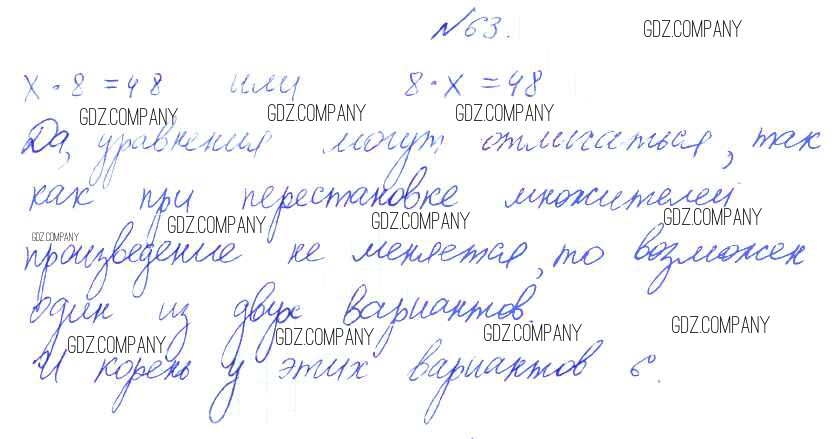 №63. GDZ.COMPANY
x · 8 = 48 или 8 · x = 48
GDZ.COMPANY GDZ.COMPANY GDZ.COMPANY
Да, уравнения могут отличаться, так
как при перестановке множителей
GDZ.COMPANY GDZ.COMPANY GDZ.COMPANY GDZ.COMPANY
произведение не меняется, то возможен
один из двух вариантов.
GDZ.COMPANY GDZ.COMPANY GDZ.COMPANY GDZ.COMPANY
И корень у этих вариантов 6.